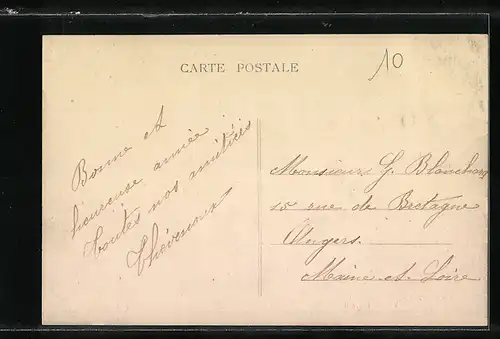 CARTE POSTALE
10
Bonne et
heureuse année
toutes nos amitiés
Thévenoux
Monsieur G. Blanchard
15 rue de Bretagne
Angers.
Maine-et-Loire